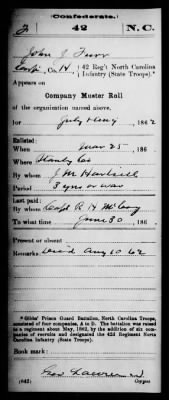 Confederate.
42 N.C.
John J Furr
Corp, Co. H, 42 Reg't North Carolina
Infantry (State Troops).
Appears on
Company Muster Roll
of the organization named above,
for July & Aug, 1862
Enlisted:
When Mar 25, 186
Where Stanly Co
By whom J M Hartsell
Period 3 yrs or war
Last paid:
By whom Capt R H McCoy
To what time June 30, 186
Present or absent
Remarks: Died Aug 10 62
*Gibbs' Prison Guard Battalion, North Carolina Troops,
consisted of four companies, A to D. The battalion was raised
to a regiment about May, 1862, by the addition of six companies
of recruits and designated the 42d Regiment North
Carolina Infantry (State Troops).
Book mark:
(642) Copyist.